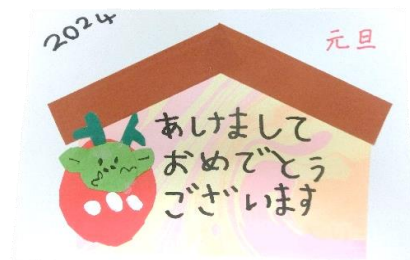 2024
元旦
あけまして
おめでとう
ございます